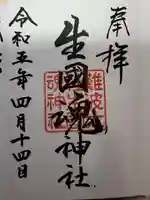 奉拝
生國魂神社
令和五年四月十四日